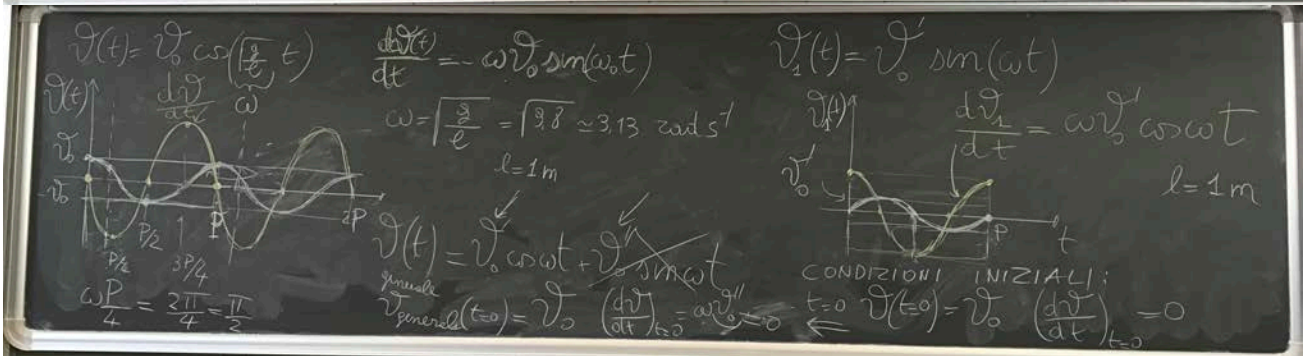 ϑ(t) = ϑ₀ cos(√(g/l) t)
ω
ϑ(t)
dϑ/dt
ϑ₀
-ϑ₀
P/2
P
2P
3P/4
ωP/4 = 2π/4 = π/2
dϑ(t)/dt = - ωϑ₀ sin(ω₀t)
ω = √(g/l) = √9,8 ≃ 3,13 rad s⁻¹
l = 1 m
ϑ(t) = ϑ₀ cos ωt + ϑ₀'' sin ωt
generale
ϑ generale (t=0) = ϑ₀ (dϑ/dt)t=0 = ωϑ₀'' = 0
ϑ₁(t) = ϑ₀' sin(ωt)
ϑ₁(t)
ϑ₀'
P
t
dϑ₁/dt = ωϑ₀' cos ωt
l = 1 m
CONDIZIONI INIZIALI:
⇐ t=0 ϑ(t=0) = ϑ₀ (dϑ/dt)t=0 = 0